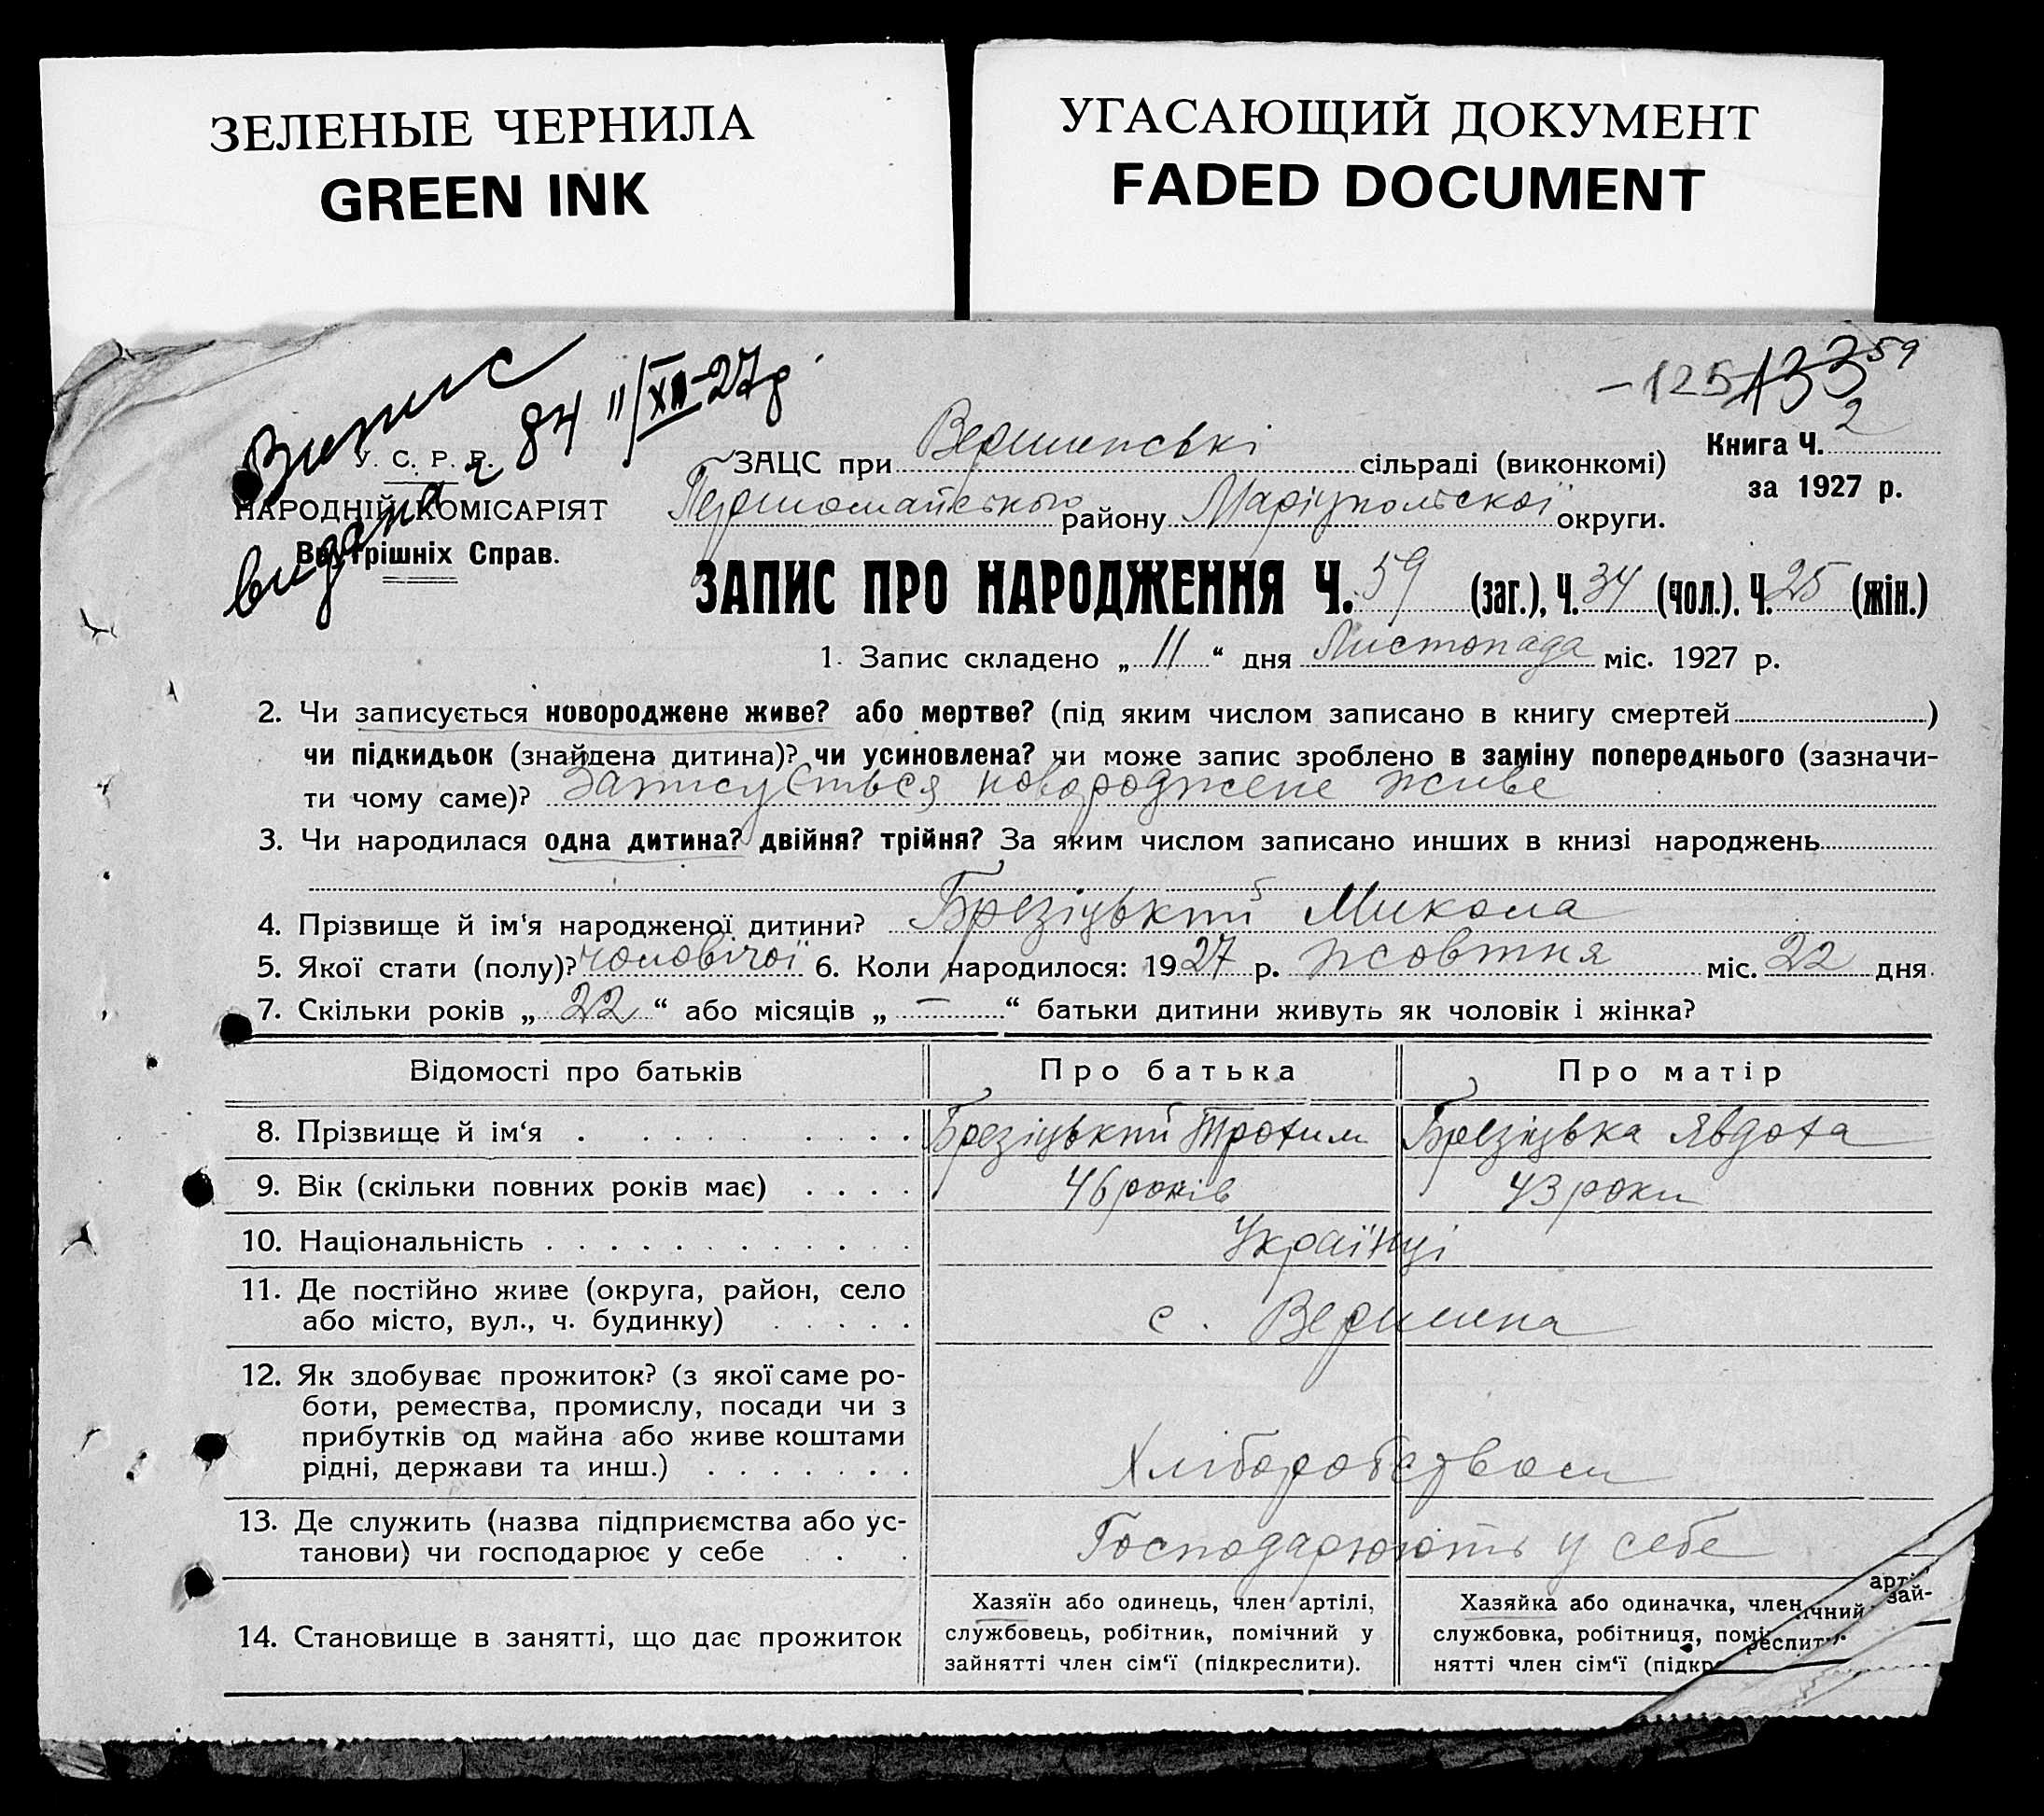 ЗЕЛЕНЫЕ ЧЕРНИЛА
GREEN INK
УГАСАЮЩИЙ ДОКУМЕНТ
FADED DOCUMENT
Випис
видана 84 11/XII-27р.
-125 133 59
У. С. Р. Р.
НАРОДНІЙ КОМІСАРІЯТ
Внутрішніх Справ.
ЗАЦС при Вершинській сільраді (виконкомі)
Першомайського району Маріупольскої округи.
Книга Ч. 2
за 1927 р.
ЗАПИС ПРО НАРОДЖЕННЯ Ч. 59 (заг.), Ч. 34 (чол.). Ч. 25 (жін.)
1. Запис складено „ 11 “ дня Листопада міс. 1927 р.
2. Чи записується новороджене живе? або мертве? (під яким числом записано в книгу смертей )
чи підкидьок (знайдена дитина)? чи усиновлена? чи може запис зроблено в заміну попереднього (зазначи-
ти чому саме)? Записується новороджене живе
3. Чи народилася одна дитина? двійня? трійня? За яким числом записано инших в книзі народжень
4. Прізвище й ім'я народженої дитини? Брезіцький Микола
5. Якої стати (полу)? чоловічої 6. Коли народилося: 1927 р. жовтня міс. 22 дня.
7. Скільки років „ 22 “ або місяців „ — “ батьки дитини живуть як чоловік і жінка?
Відомості про батьків Про батька Про матір
8. Прізвище й ім'я Брезіцький Трохим Брезіцька Явдоха
9. Вік (скільки повних років має) 46 років 43 роки
10. Національність Українці
11. Де постійно живе (округа, район, село
або місто, вул., ч. будинку) с. Вершина
12. Як здобуває прожиток? (з якої саме ро-
боти, ремества, промислу, посади чи з
прибутків од майна або живе коштами
рідні, держави та инш.) Хліборобством
13. Де служить (назва підприємства або ус-
танови) чи господарює у себе Господарюють у себе
14. Становище в занятті, що дає прожиток
Хазяїн або одинець, член артілі,
службовець, робітник, помічний у
зайнятті член сім'ї (підкреслити).
Хазяйка або одиначка, член
службовка, робітниця,
нятті член сім'ї